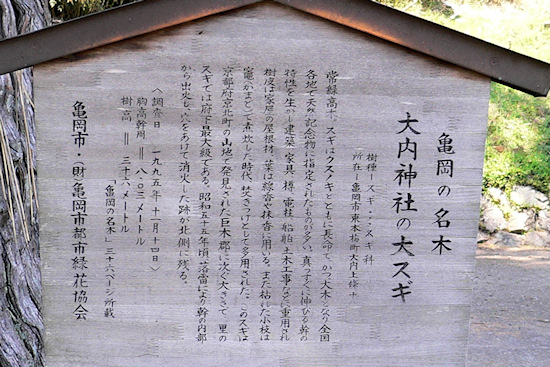 亀岡の名木
大内神社の大スギ
樹種－スギ・スギ科
所在－亀岡市東本梅町大内上條十
常緑高木。スギはクスノキとともに長命で、かつ大木となり全国
各地で天然記念物に指定されたものが多い。真っすぐに伸びる幹の
特性を生かし建築、家具、樽、電柱、船舶、土木工事などに重用され
樹皮は家屋の屋根材、葉は線香や抹香に用いる。また枯れた小枝は
竈(かまど)で煮炊した時代、焚きつけとして多用された。このスギは
京都府京北町の山地で発見された巨木郡に次ぐ大きさで、里の
スギでは府下最大級である。昭和五十五年頃、落雷により幹の内部
から出火し、穴をあけて消火した跡が北側に残る。
〈調査日 一九九五年十一月十四日〉
胸高幹周 ＝ 八・〇三メートル
樹高 ＝ 三十六メートル
「亀岡の名木」三十六ページ所載
亀岡市・財亀岡市都市緑花協会